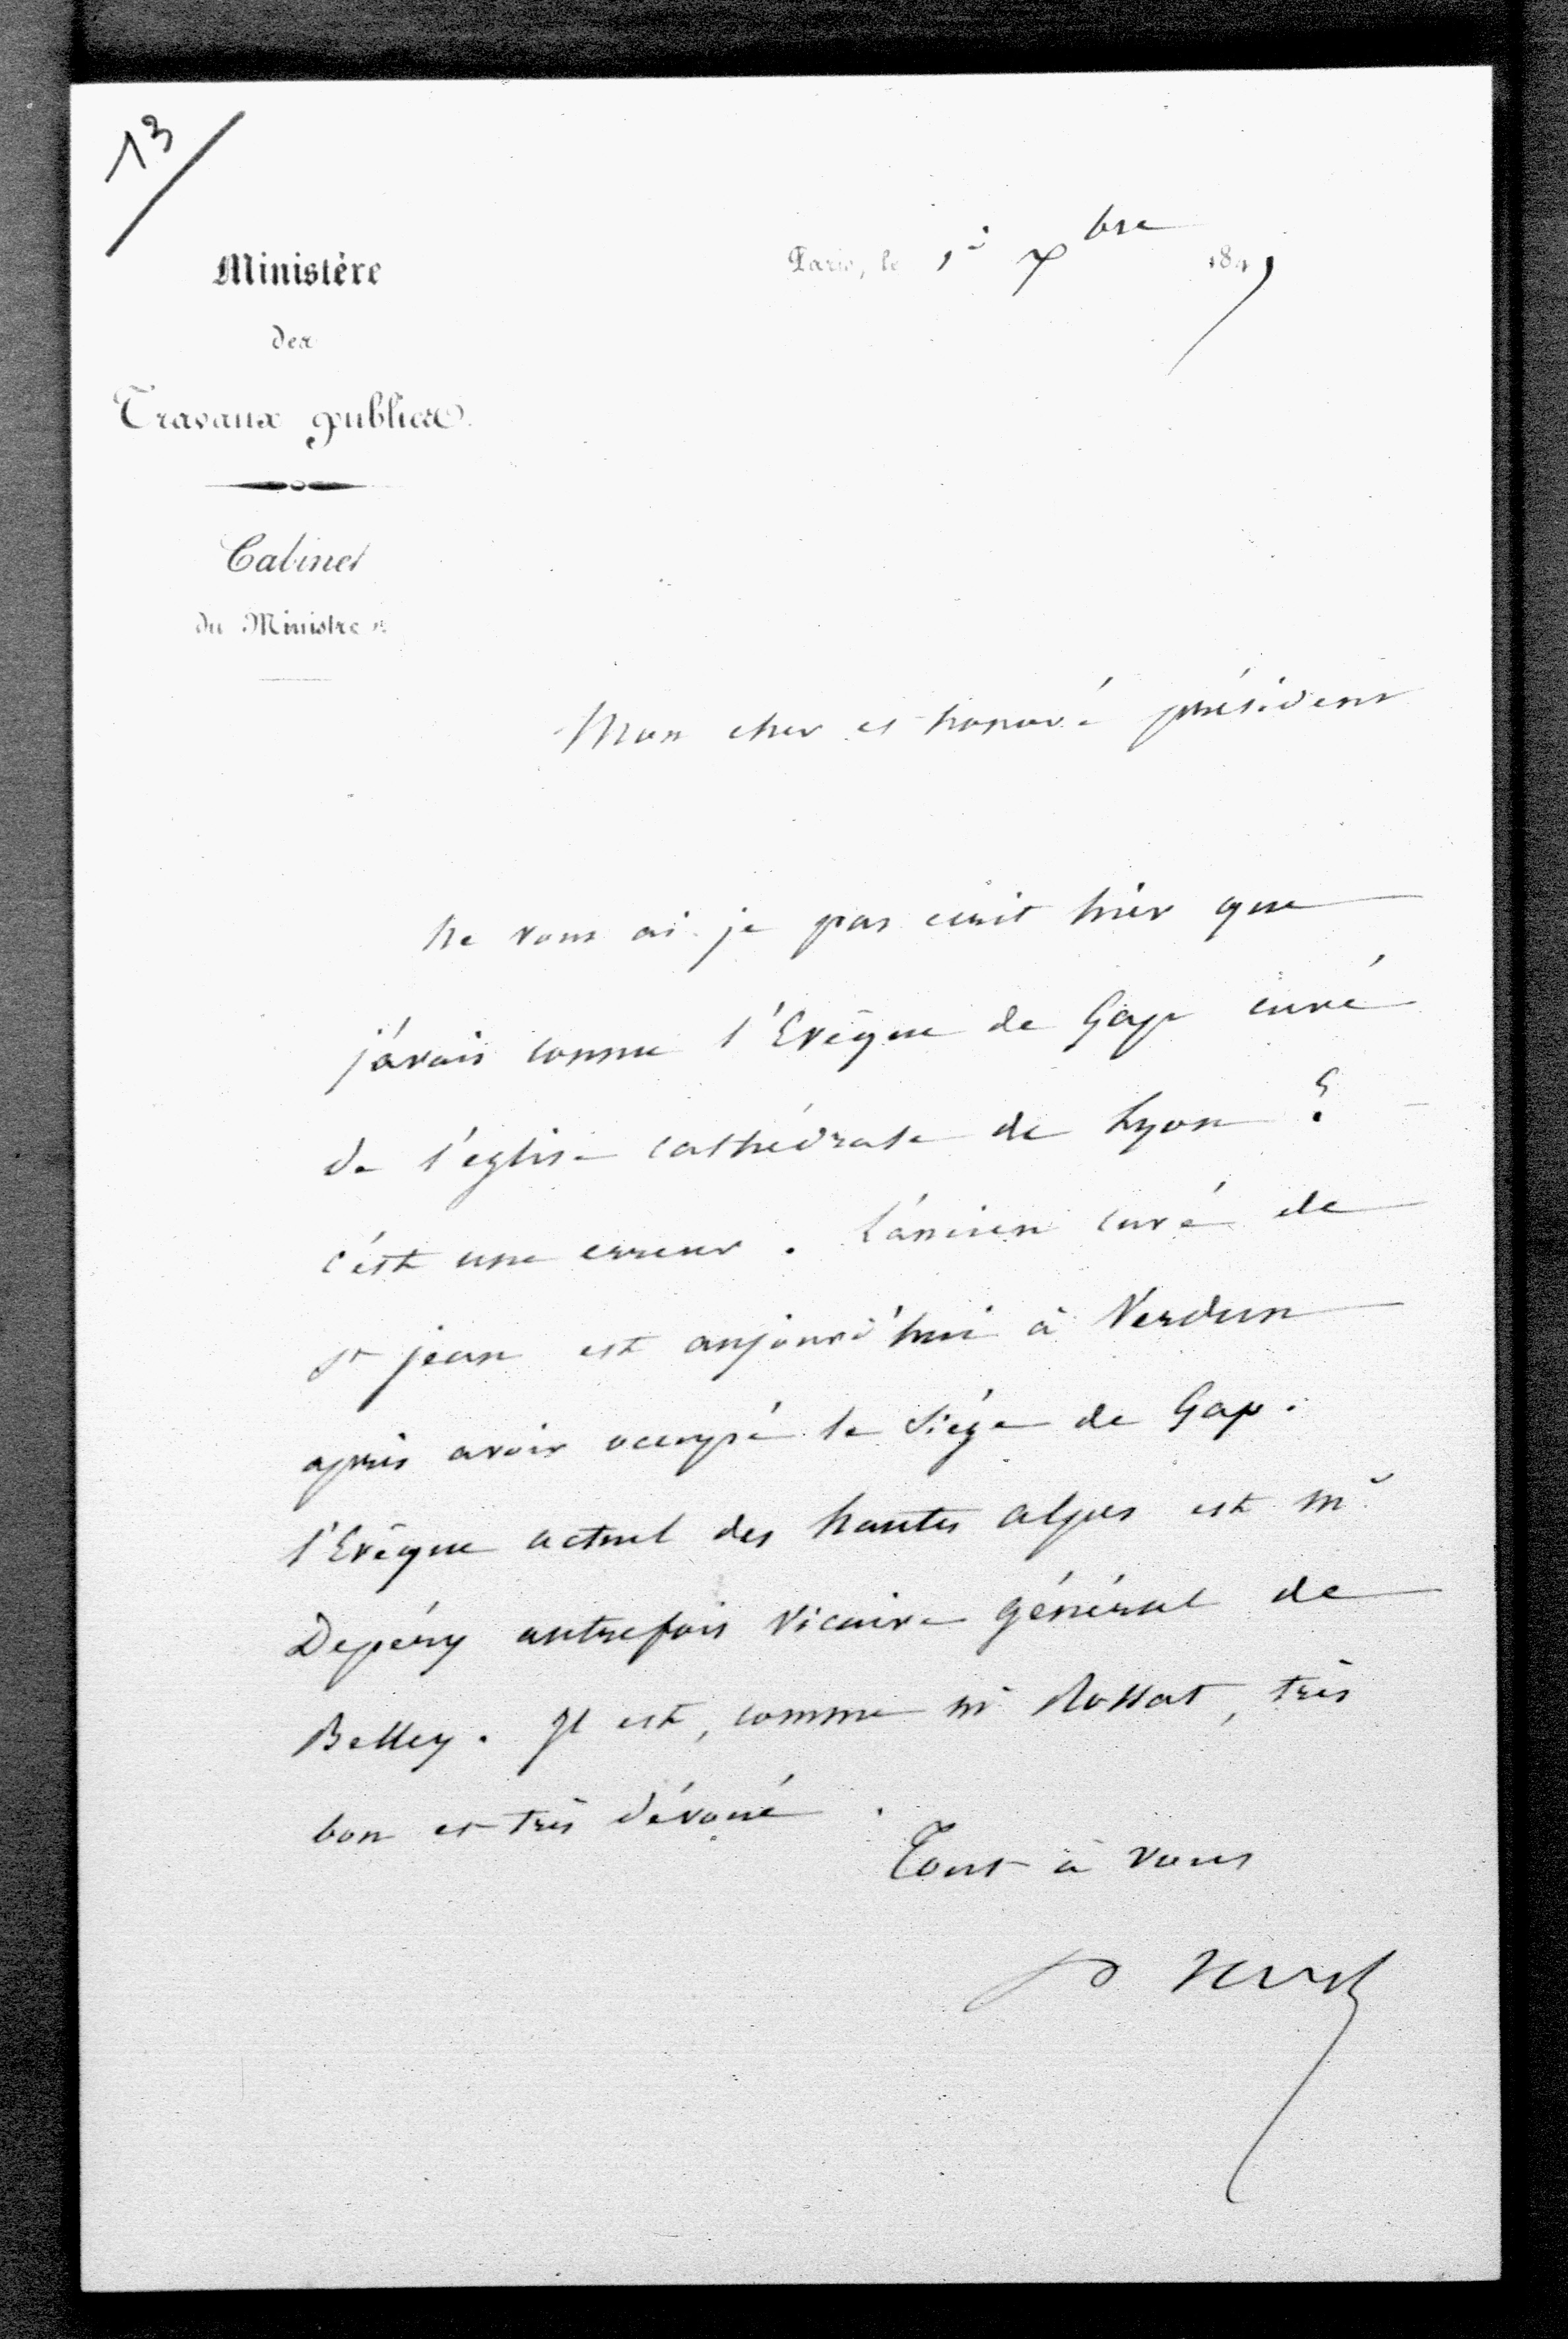 13
Ministère
des
Travaux publics.
Cabinet
du Ministre
Paris, le 1er Xbre 184
Mon cher et honoré président
Ne vous ai-je pas écrit hier que
j'avais connu l'Evêque de Gap curé
de l'église cathédrale de Lyon ?
c'est une erreur. L'ancien curé de
St jean est aujourd'hui à Verdun
après avoir occupé le Siége de Gap.
l'Evêque actuel des hautes alpes est Mr
Depéry autrefois Vicaire général de
Belley. Il est, comme Mr Rossat, très
bon et très dévoué.
Tout à vous